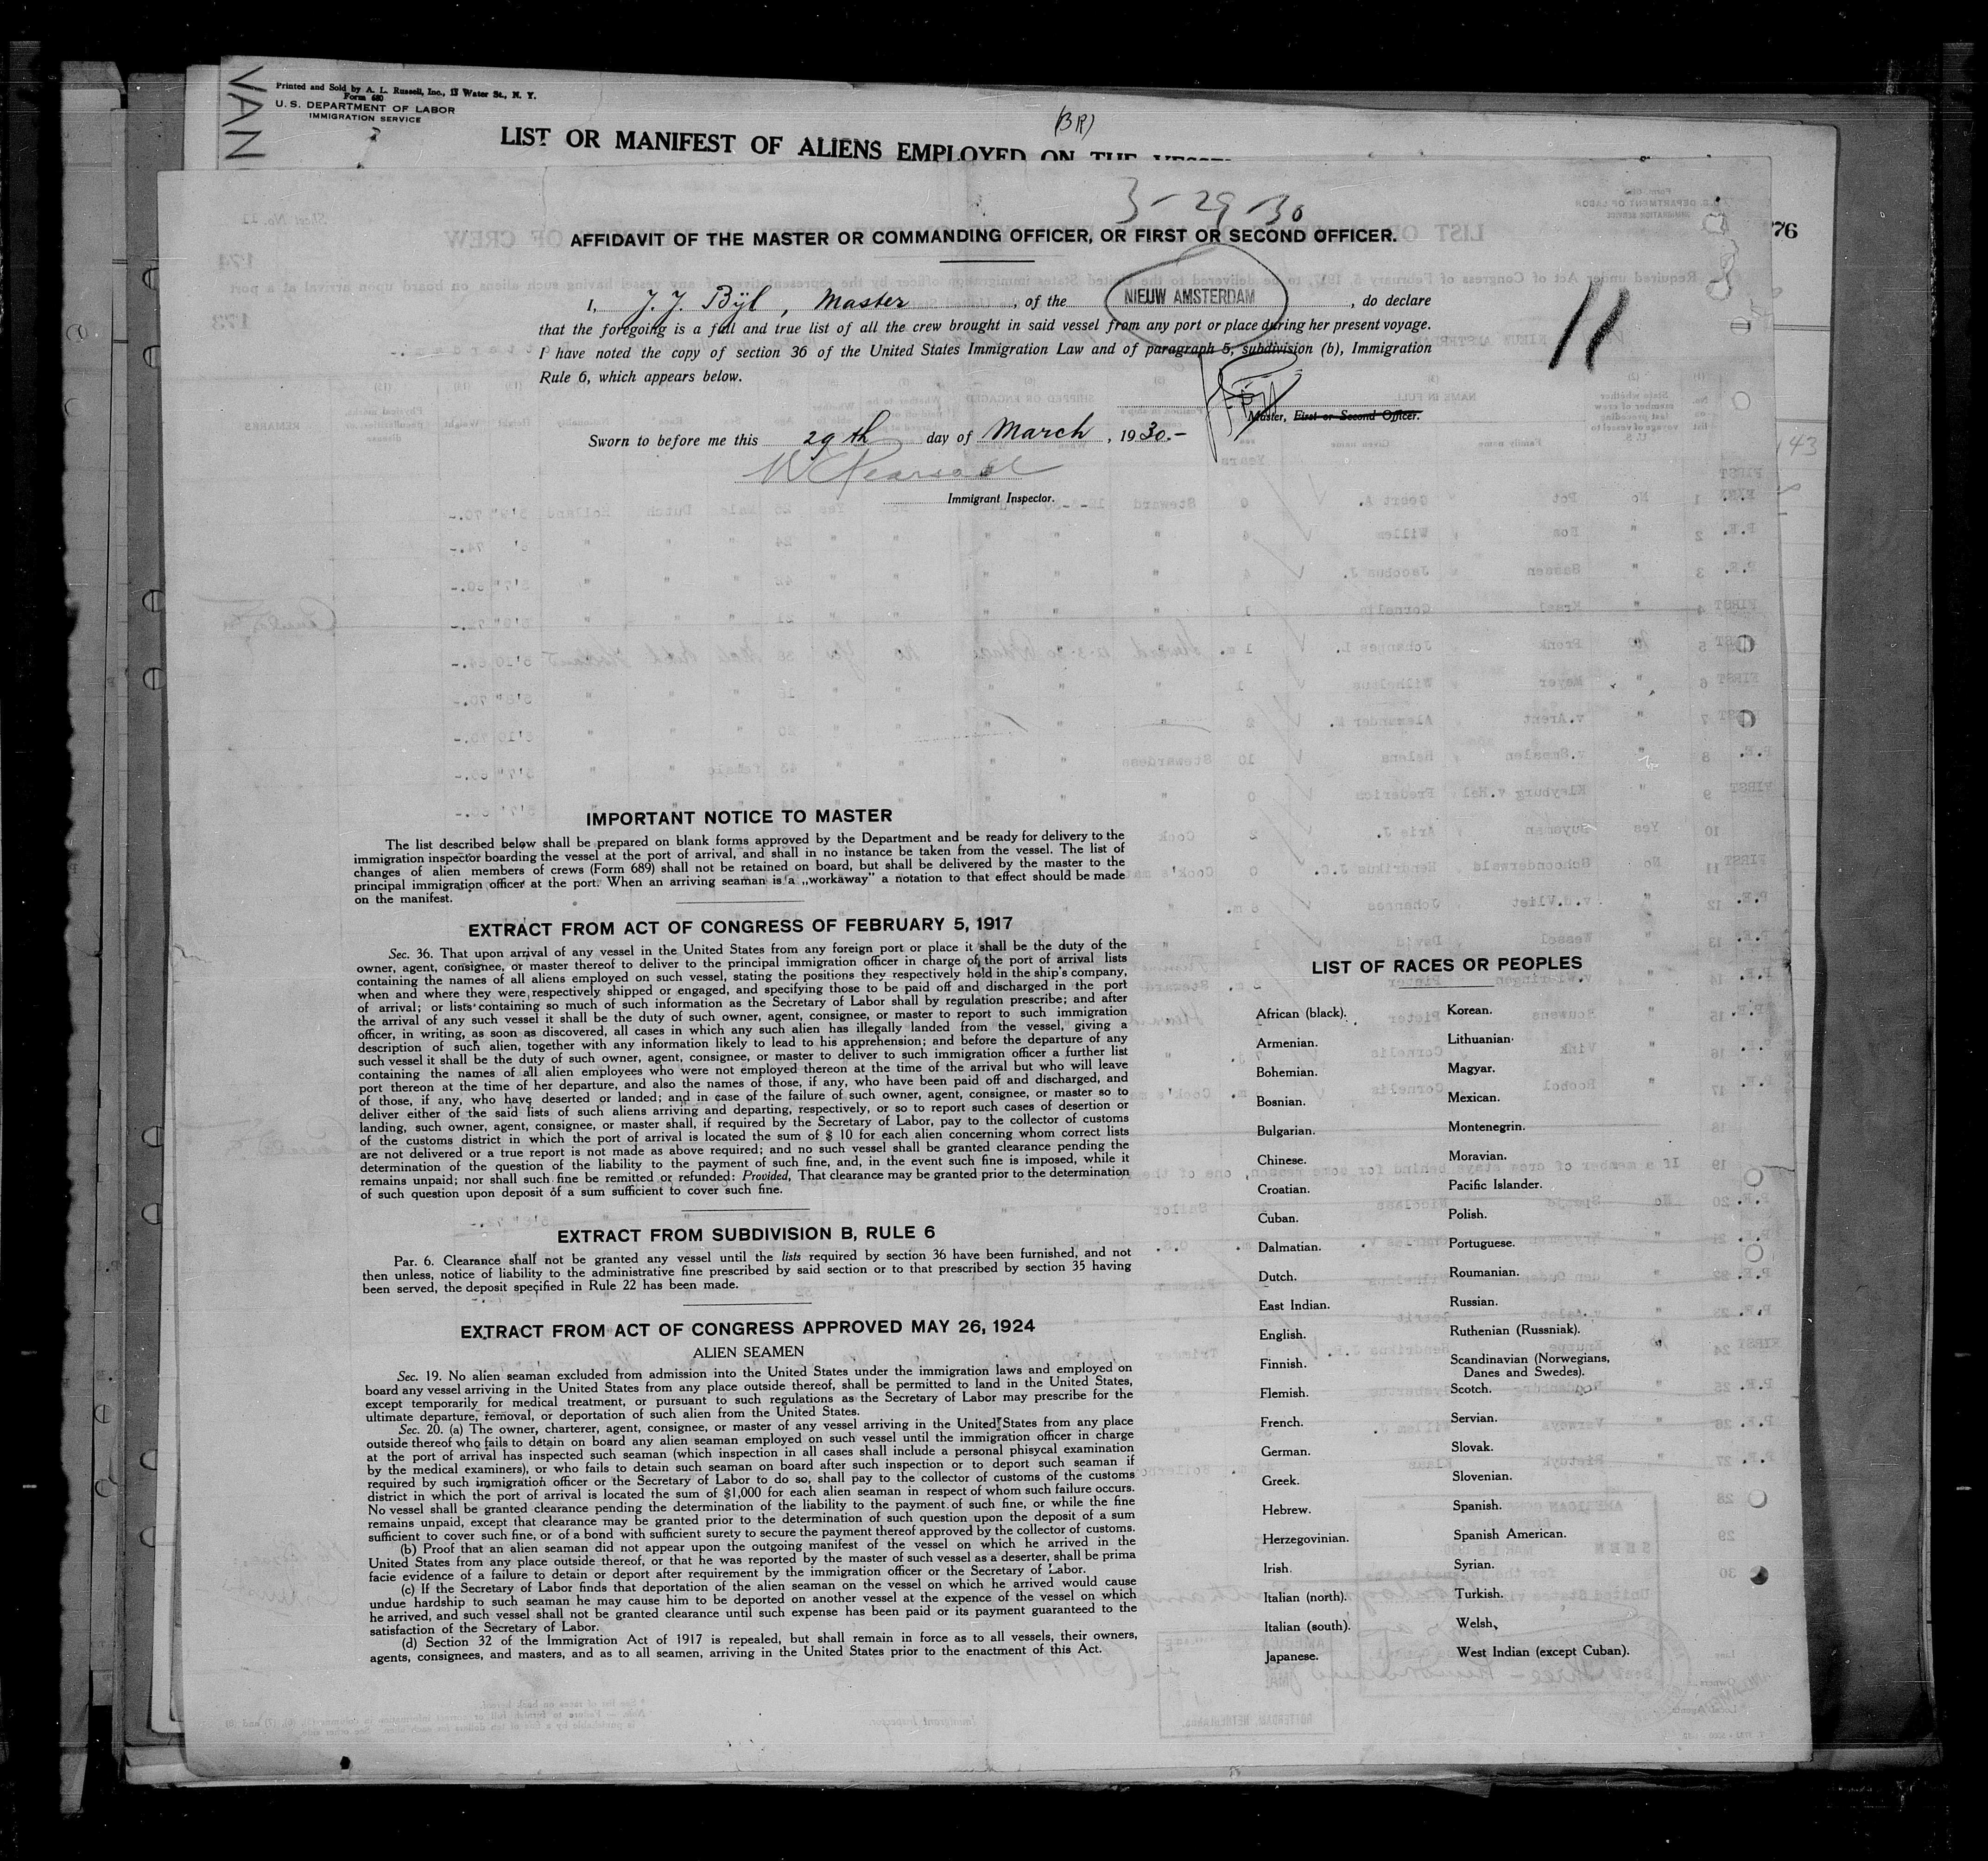 VAN
Printed and Sold by A. L. Russell, Inc., 17 Water St., N. Y.
Form 680
U. S. DEPARTMENT OF LABOR
IMMIGRATION SERVICE
(BR)
LIST OR MANIFEST OF ALIENS EMPLOYED ON THE
3-29-30
76
AFFIDAVIT OF THE MASTER OR COMMANDING OFFICER, OR FIRST OR SECOND OFFICER.
I, J. J. Bijl, Master, of the NIEUW AMSTERDAM, do declare
that the foregoing is a full and true list of all the crew brought in said vessel from any port or place during her present voyage.
I have noted the copy of section 36 of the United States Immigration Law and of paragraph 5, subdivision (b), Immigration
Rule 6, which appears below.
11
Master, First or Second Officer.
Sworn to before me this 29th day of March, 1930.-
43
Immigrant Inspector.
IMPORTANT NOTICE TO MASTER
The list described below shall be prepared on blank forms approved by the Department and be ready for delivery to the
immigration inspector boarding the vessel at the port of arrival, and shall in no instance be taken from the vessel. The list of
changes of alien members of crews (Form 689) shall not be retained on board, but shall be delivered by the master to the
principal immigration officer at the port. When an arriving seaman is a „workaway” a notation to that effect should be made
on the manifest.
EXTRACT FROM ACT OF CONGRESS OF FEBRUARY 5, 1917
Sec. 36. That upon arrival of any vessel in the United States from any foreign port or place it shall be the duty of the
owner, agent, consignee, or master thereof to deliver to the principal immigration officer in charge of the port of arrival lists
containing the names of all aliens employed on such vessel, stating the positions they respectively hold in the ship's company,
when and where they were respectively shipped or engaged, and specifying those to be paid off and discharged in the port
of arrival; or lists containing so much of such information as the Secretary of Labor shall by regulation prescribe; and after
the arrival of any such vessel it shall be the duty of such owner, agent, consignee, or master to report to such immigration
officer, in writing, as soon as discovered, all cases in which any such alien has illegally landed from the vessel, giving a
description of such alien, together with any information likely to lead to his apprehension; and before the departure of any
such vessel it shall be the duty of such owner, agent, consignee, or master to deliver to such immigration officer a further list
containing the names of all alien employees who were not employed thereon at the time of the arrival but who will leave
port thereon at the time of her departure, and also the names of those, if any, who have been paid off and discharged, and
of those, if any, who have deserted or landed; and in case of the failure of such owner, agent, consignee, or master so to
deliver either of the said lists of such aliens arriving and departing, respectively, or so to report such cases of desertion or
landing, such owner, agent, consignee, or master shall, if required by the Secretary of Labor, pay to the collector of customs
of the customs district in which the port of arrival is located the sum of $ 10 for each alien concerning whom correct lists
are not delivered or a true report is not made as above required; and no such vessel shall be granted clearance pending the
determination of the question of the liability to the payment of such fine, and, in the event such fine is imposed, while it
remains unpaid; nor shall such fine be remitted or refunded: Provided, That clearance may be granted prior to the determination
of such question upon deposit of a sum sufficient to cover such fine.
EXTRACT FROM SUBDIVISION B, RULE 6
Par. 6. Clearance shall not be granted any vessel until the lists required by section 36 have been furnished, and not
then unless, notice of liability to the administrative fine prescribed by said section or to that prescribed by section 35 having
been served, the deposit specified in Rule 22 has been made.
EXTRACT FROM ACT OF CONGRESS APPROVED MAY 26, 1924
ALIEN SEAMEN
Sec. 19. No alien seaman excluded from admission into the United States under the immigration laws and employed on
board any vessel arriving in the United States from any place outside thereof, shall be permitted to land in the United States,
except temporarily for medical treatment, or pursuant to such regulations as the Secretary of Labor may prescribe for the
ultimate departure, removal, or deportation of such alien from the United States.
Sec. 20. (a) The owner, charterer, agent, consignee, or master of any vessel arriving in the United States from any place
outside thereof who fails to detain on board any alien seaman employed on such vessel until the immigration officer in charge
at the port of arrival has inspected such seaman (which inspection in all cases shall include a personal phisycal examination
by the medical examiners), or who fails to detain such seaman on board after such inspection or to deport such seaman if
required by such immigration officer or the Secretary of Labor to do so, shall pay to the collector of customs of the customs
district in which the port of arrival is located the sum of $1,000 for each alien seaman in respect of whom such failure occurs.
No vessel shall be granted clearance pending the determination of the liability to the payment of such fine, or while the fine
remains unpaid, except that clearance may be granted prior to the determination of such question upon the deposit of a sum
sufficient to cover such fine, or of a bond with sufficient surety to secure the payment thereof approved by the collector of customs.
(b) Proof that an alien seaman did not appear upon the outgoing manifest of the vessel on which he arrived in the
United States from any place outside thereof, or that he was reported by the master of such vessel as a deserter, shall be prima
facie evidence of a failure to detain or deport after requirement by the immigration officer or the Secretary of Labor.
(c) If the Secretary of Labor finds that deportation of the alien seaman on the vessel on which he arrived would cause
undue hardship to such seaman he may cause him to be deported on another vessel at the expence of the vessel on which
he arrived, and such vessel shall not be granted clearance until such expense has been paid or its payment guaranteed to the
satisfaction of the Secretary of Labor.
(d) Section 32 of the Immigration Act of 1917 is repealed, but shall remain in force as to all vessels, their owners,
agents, consignees, and masters, and as to all seamen, arriving in the United States prior to the enactment of this Act.
LIST OF RACES OR PEOPLES
African (black).
Armenian.
Bohemian.
Bosnian.
Bulgarian.
Chinese.
Croatian.
Cuban.
Dalmatian.
Dutch.
East Indian.
English.
Finnish.
Flemish.
French.
German.
Greek.
Hebrew.
Herzegovinian.
Irish.
Italian (north).
Italian (south).
Japanese.
Korean.
Lithuanian.
Magyar.
Mexican.
Montenegrin.
Moravian.
Pacific Islander.
Polish.
Portuguese.
Roumanian.
Russian.
Ruthenian (Russniak).
Scandinavian (Norwegians,
Danes and Swedes).
Scotch.
Servian.
Slovak.
Slovenian.
Spanish.
Spanish American.
Syrian.
Turkish.
Welsh.
West Indian (except Cuban).